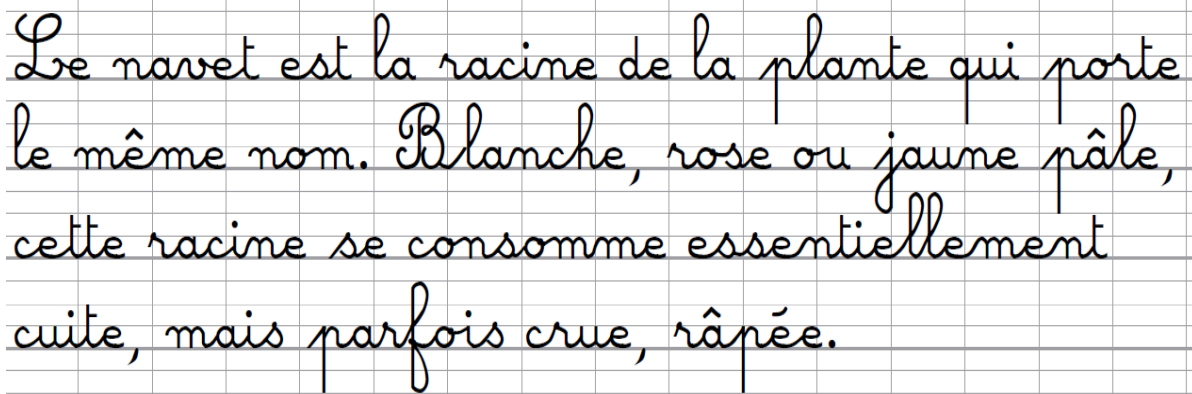 Le navet est la racine de la plante qui porte
le même nom. Blanche, rose ou jaune pâle,
cette racine se consomme essentiellement
cuite, mais parfois crue, râpée.